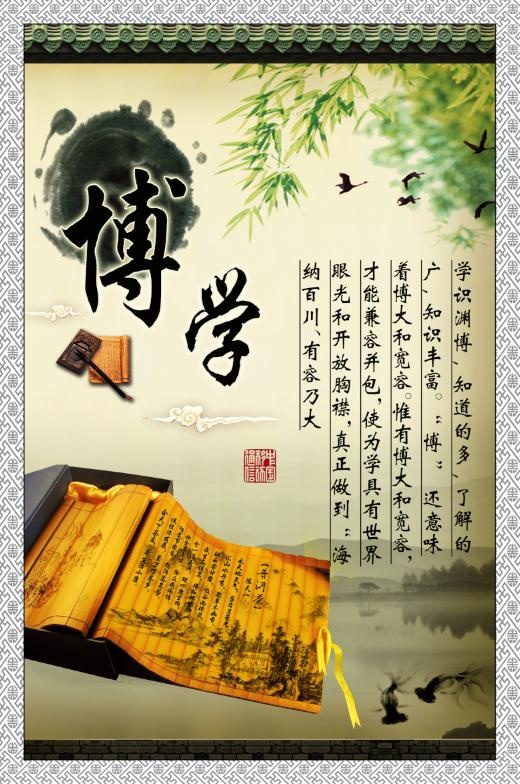 博学
学识渊博、知道的多、了解的
广、知识丰富。“博”还意味
着博大和宽容。惟有博大和宽容，
才能兼容并包，使为学具有世界
眼光和开放胸襟，真正做到“海
纳百川、有容乃大
中国
移动
通信